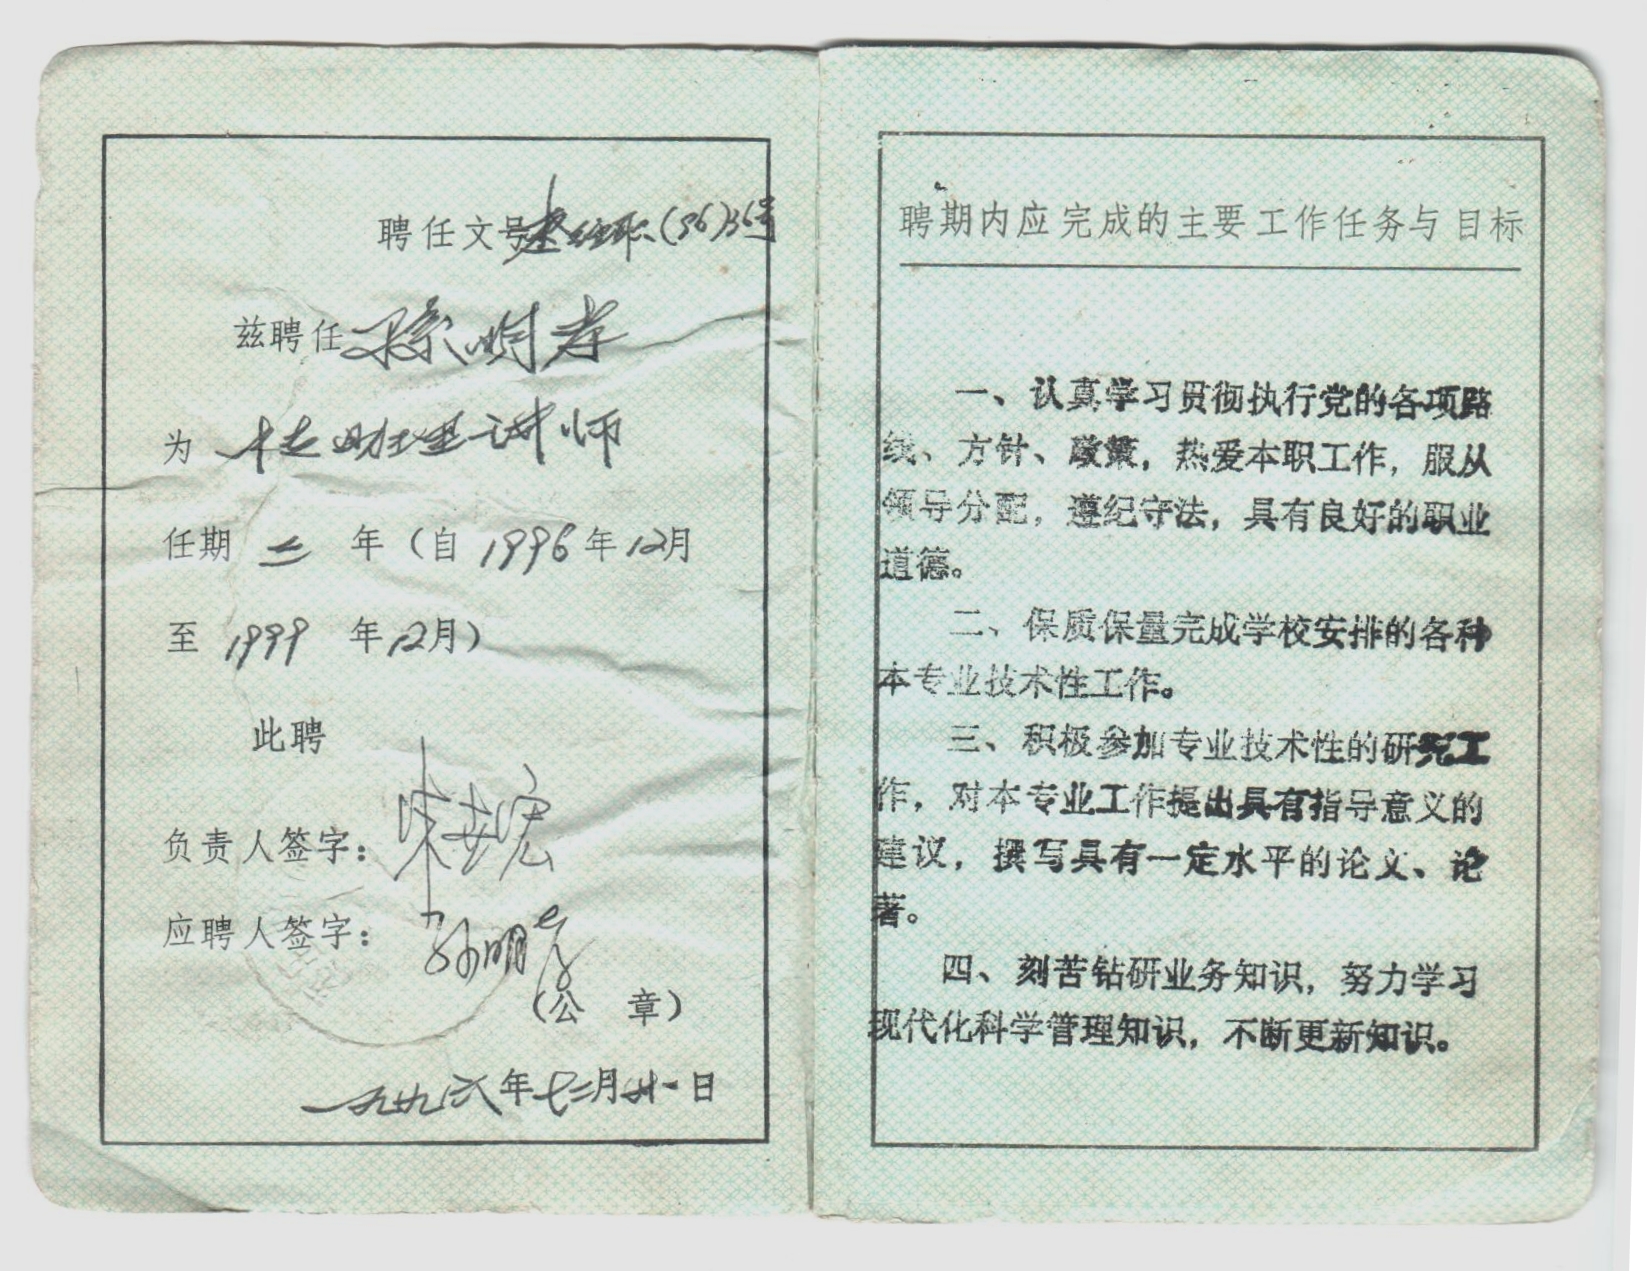 聘任文号 (96)36号
兹聘任 孫明孝
为 助理讲师
任期 三 年（自 1996 年 12月
至 1999 年 12月）
此聘
负责人签字：
应聘人签字：孙明孝
（公 章）
一九九六年十二月卅一日
聘期内应完成的主要工作任务与目标
一、认真学习贯彻执行党的各项路
线、方针、政策，热爱本职工作，服从
领导分配，遵纪守法，具有良好的职业
道德。
二、保质保量完成学校安排的各种
本专业技术性工作。
三、积极参加专业技术性的研究工
作，对本专业工作提出具有指导意义的
建议，撰写具有一定水平的论文、论
著。
四、刻苦钻研业务知识，努力学习
现代化科学管理知识，不断更新知识。